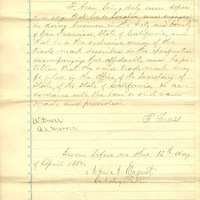 F. Grass being duly sworn deposes
and says that he is located and engaged
in doing business in the City and County
of San Francisco, State of California, and
that he is the exclusive owner of the
trade mark described in the specification
accompanying this affidavit, and he peti-
tions that the said trade mark may
be filed in the office of the Secretary
of State, of the State of California, in ac-
cordance with the law in such cases
made and provided
F.
Sworn before me this 12th day
of April 188
Notary Public